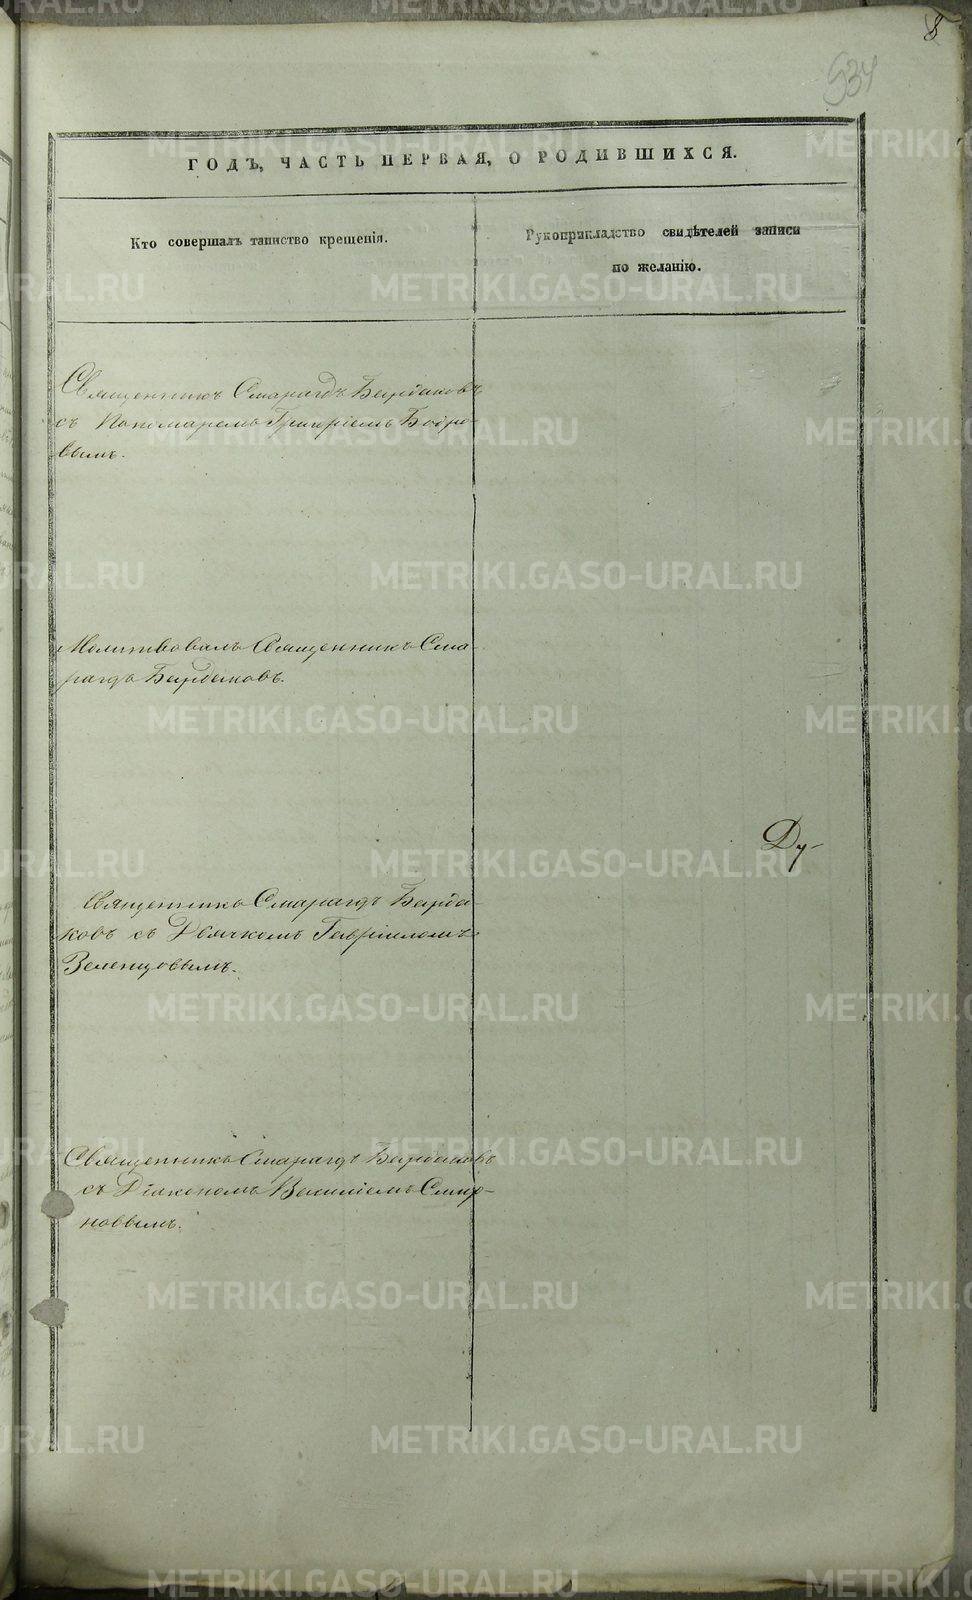 8
534
ГОДЪ, ЧАСТЬ ПЕРВАЯ, О РОДИВШИХСЯ.
Кто совершалъ таинство крещенія.
Рукоприкладство свидѣтелей записи
по желанію.
Священникъ Смарагдъ Бирюковъ
съ Пономаремъ Григоріемъ
вымъ.
Молитвовалъ Священникъ Сма-
рагдъ
Священникъ Смарагдъ
ковъ съ Дьячкомъ Гавріиломъ
Зеленцовымъ.
Ду-
Священникъ Смарагдъ
съ Діакономъ Василіемъ Смир-
новымъ.
METRIKI.GASO-URAL.RU